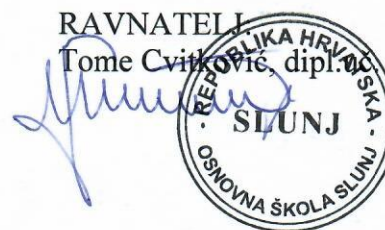 RAVNATELJ:
Tome Cvitković, dipl.uč.
REPUBLIKA HRVATSKA
SLUNJ
OSNOVNA ŠKOLA SLUNJ